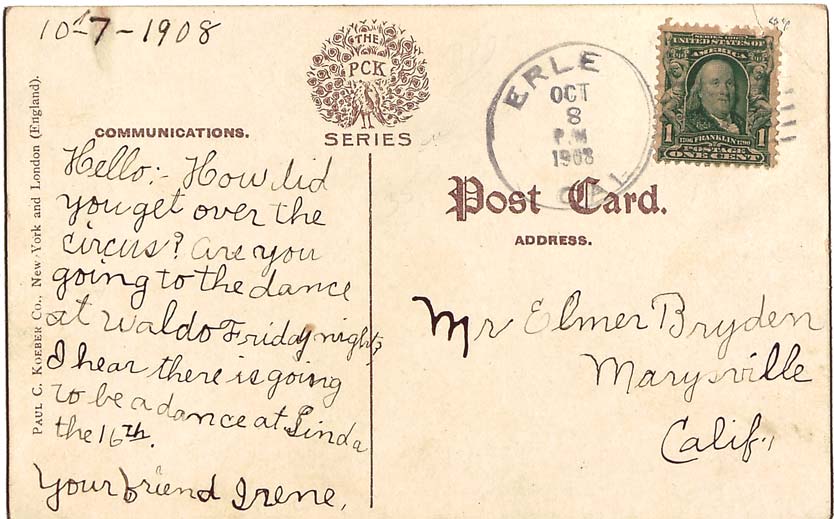 10-7-1908
THE
PCK
SERIES
COMMUNICATIONS.
Hello:- How did
you get over the
circus? are you
going to the dance
at Waldo Friday night?
I hear there is going
to be a dance at Linda
the 16th.
Your friend Irene,
PAUL C. KOEBER CO., New York and London (England).
ERLE
OCT
8
P.M
1908
CAL
SERIES 1902
UNITED STATES OF
AMERICA
1 1706 FRANKLIN 1790 1
POSTAGE
ONE CENT
Post Card.
ADDRESS.
Mr Elmer Bryden
Marysville
Calif.